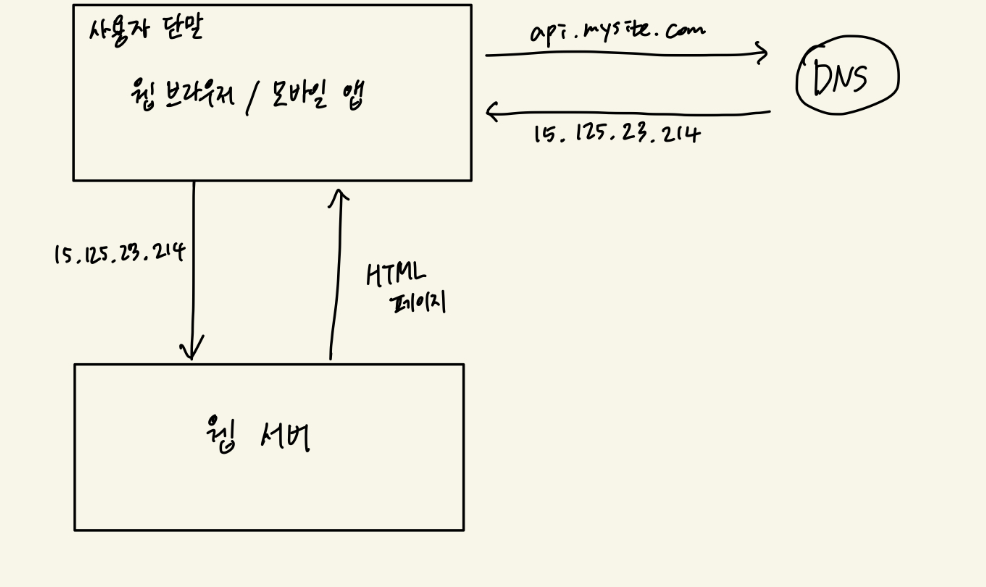 사용자 단말
웹 브라우저 / 모바일 앱
api.mysite.com
DNS
15.125.23.214
15.125.23.214
HTML
페이지
웹 서버